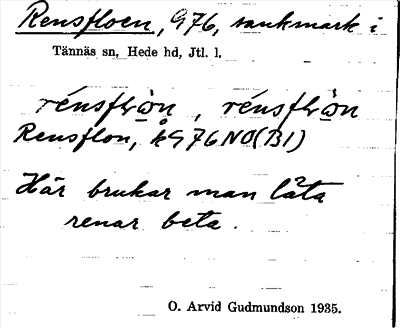 Rensfloen, G76, sankmark i
Tännäs sn, Hede hd, Jtl. l.
Rensflon, kG76NO(B1)
Här brukar man låta
renar beta.
O. Arvid Gudmundson 1935.